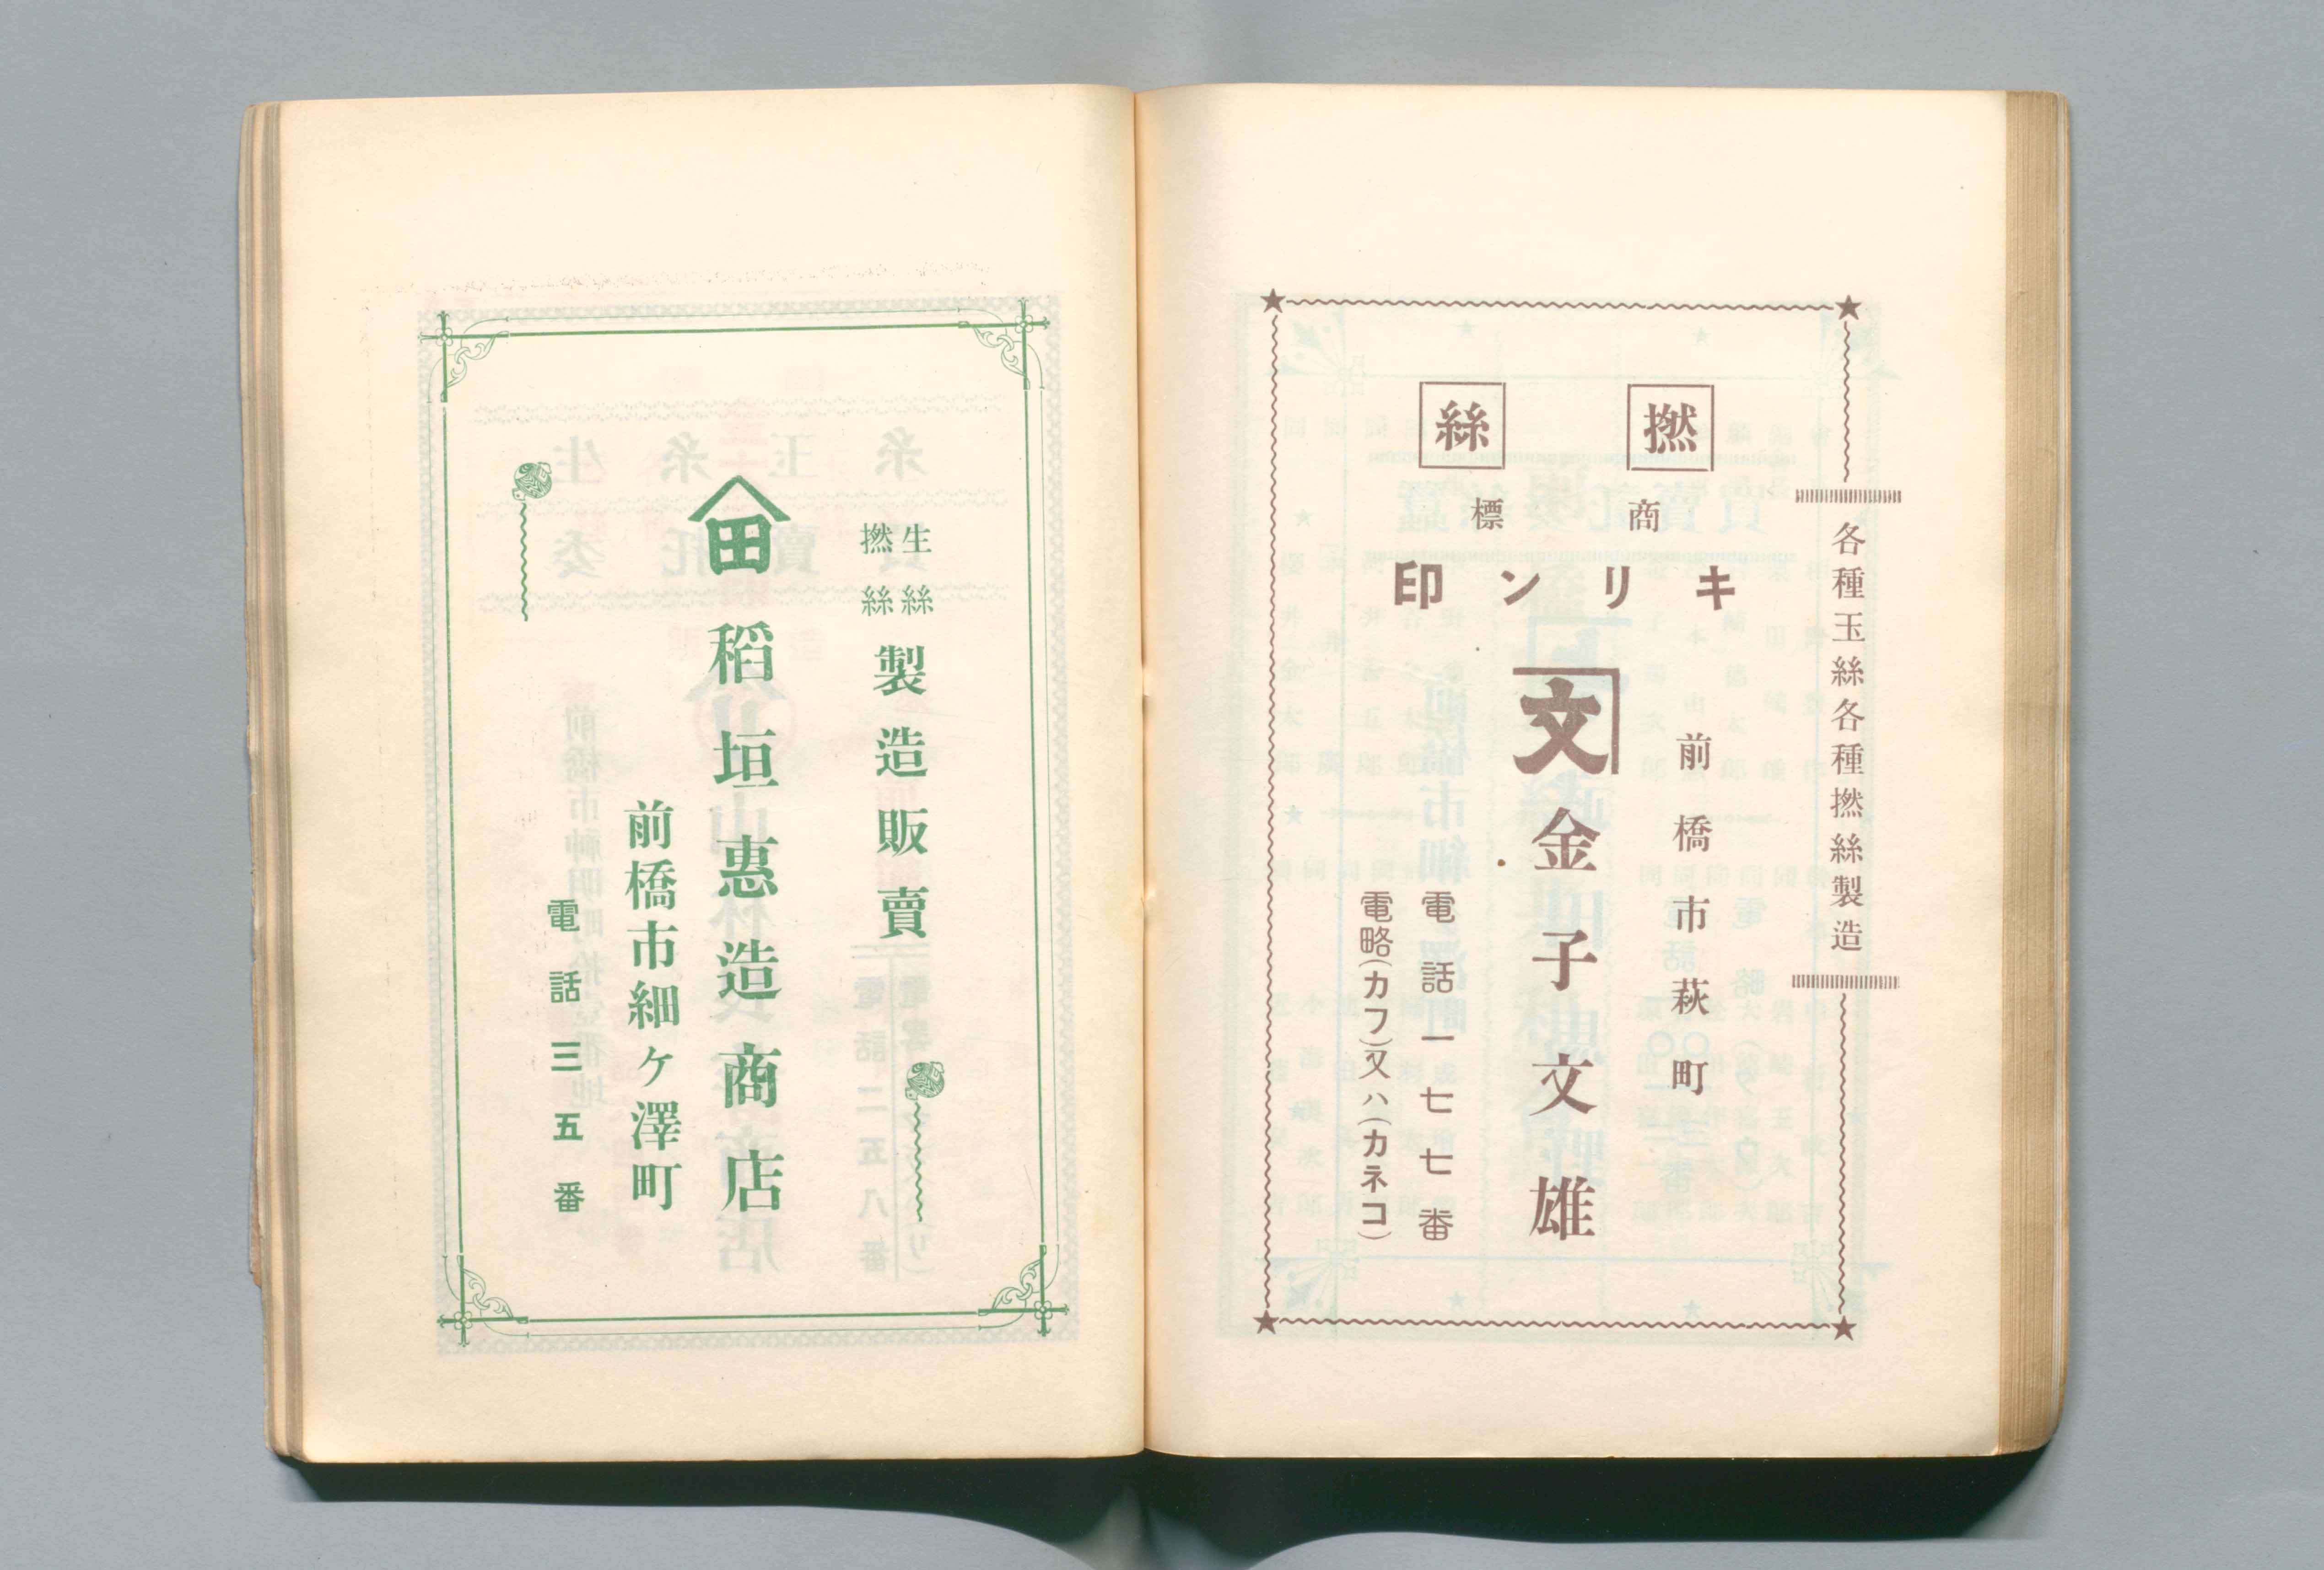 各種玉絲各種撚絲製造
撚絲
商標
キリン印
前橋市萩町
文 金子文雄
電話一七七番
電略(カフ)又ハ(カネコ)
生絲
撚絲
製造販賣
田 稻垣惠造商店
前橋市細ケ澤町
電話三五番